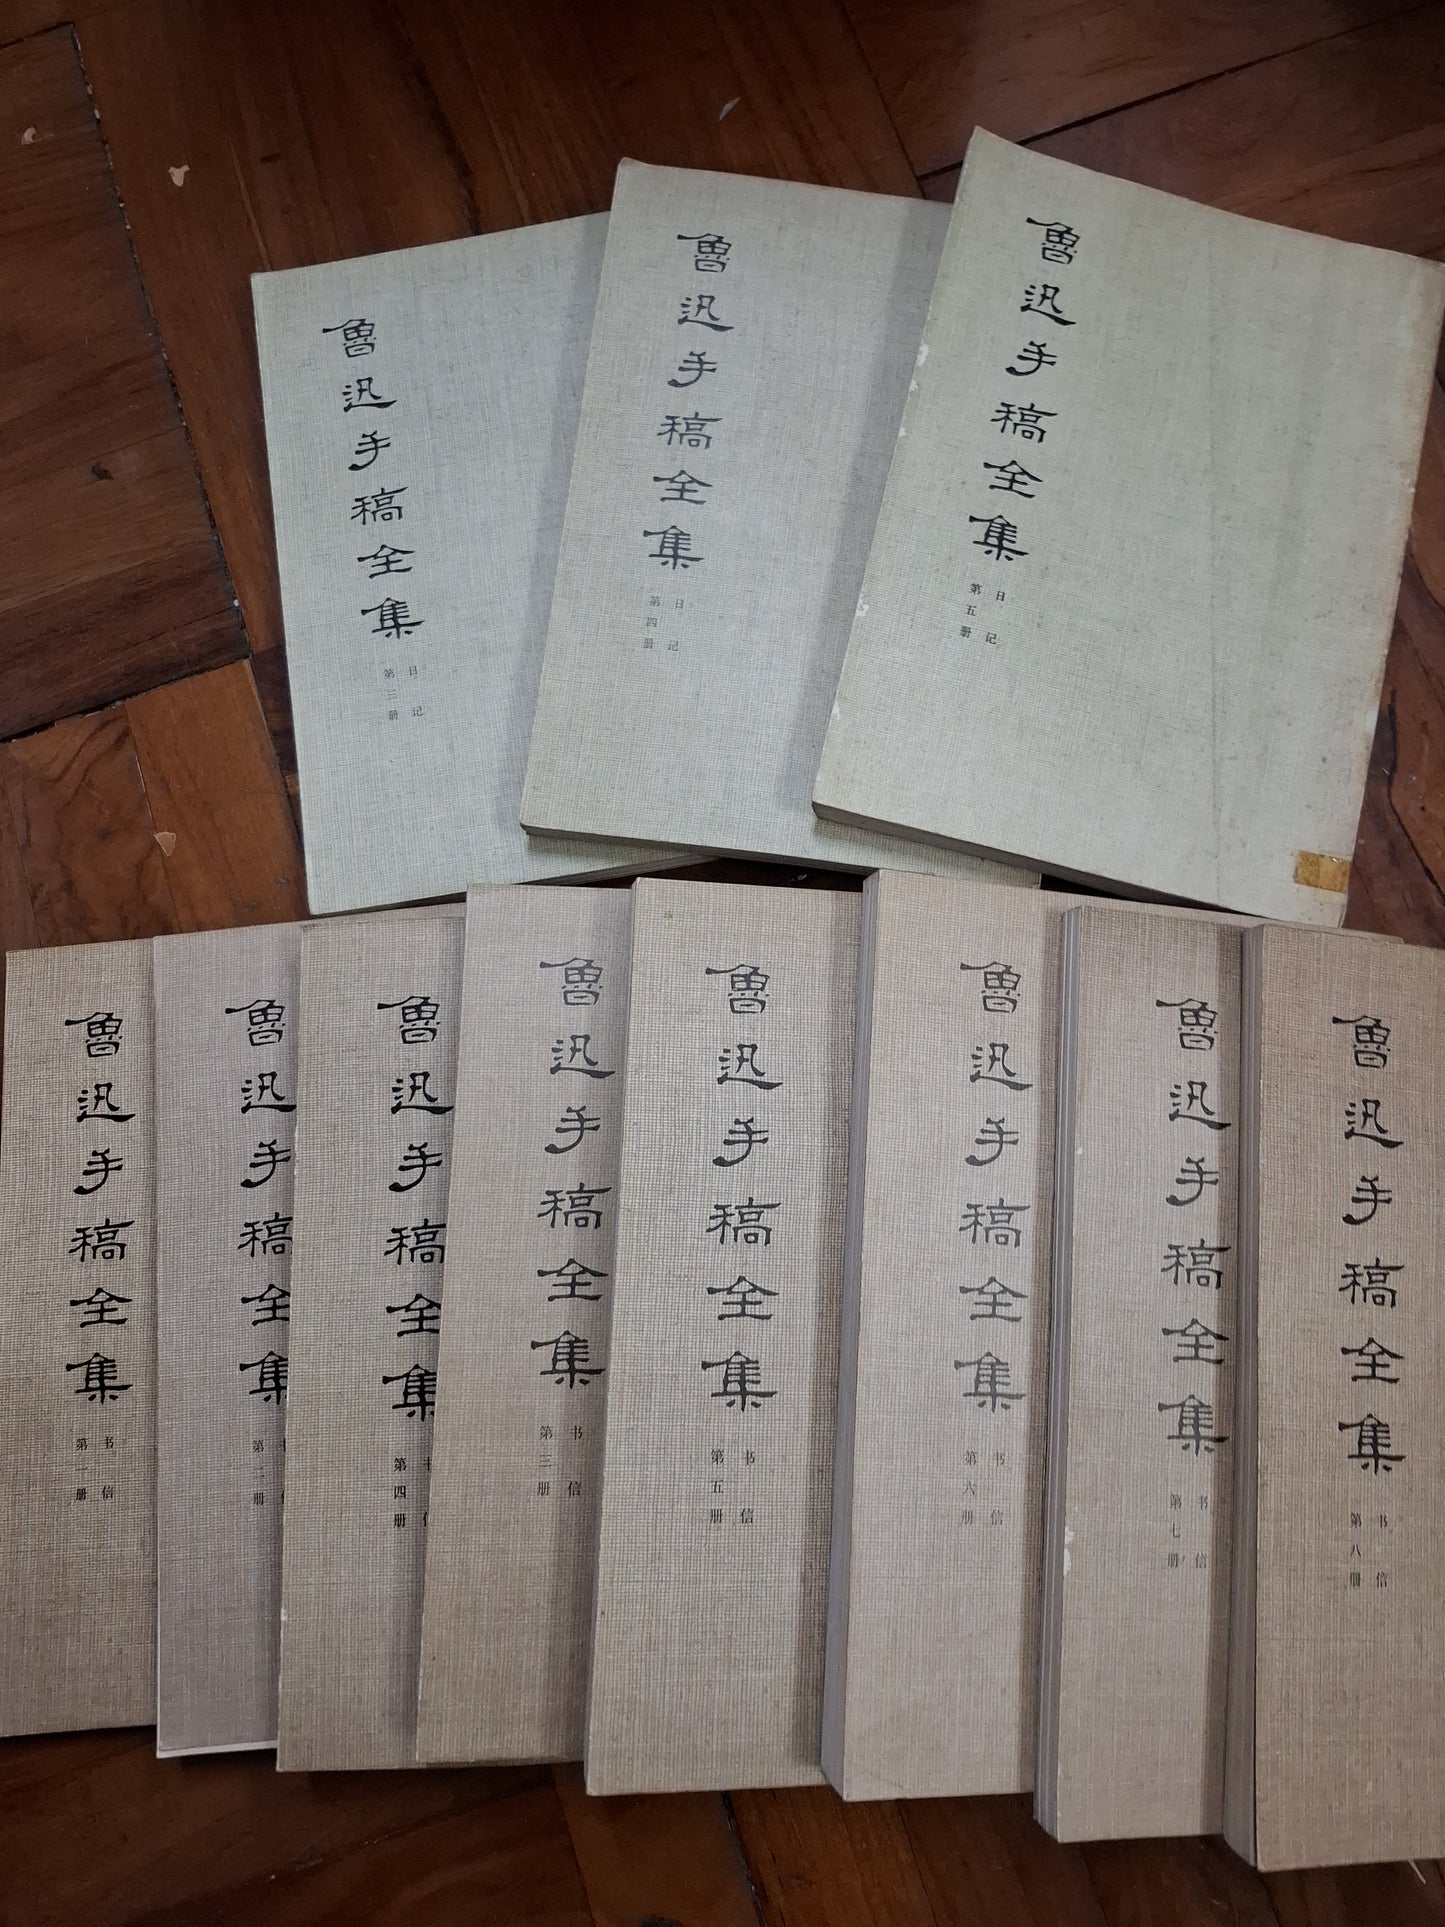 魯迅手稿全集
日记
第三册
魯迅手稿全集
日记
第四册
魯迅手稿全集
日记
第五册
魯迅手稿全集
书信
第一册
魯迅手稿全集
第二册
魯迅手稿全集
第四册
魯迅手稿全集
书信
第三册
魯迅手稿全集
书信
第五册
魯迅手稿全集
书信
第六册
魯迅手稿全集
书信
第七册
魯迅手稿全集
书信
第八册